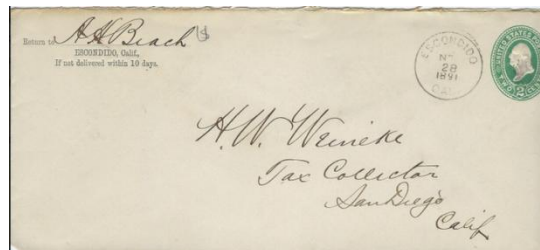 Return to A H Beach
ESCONDIDO, Calif.,
If not delivered within 10 days.
ESCONDIDO
28
1891
CAL
UNITED STATES
TWO 2
H. W. Weineke
Tax Collector
San Diego
Calif